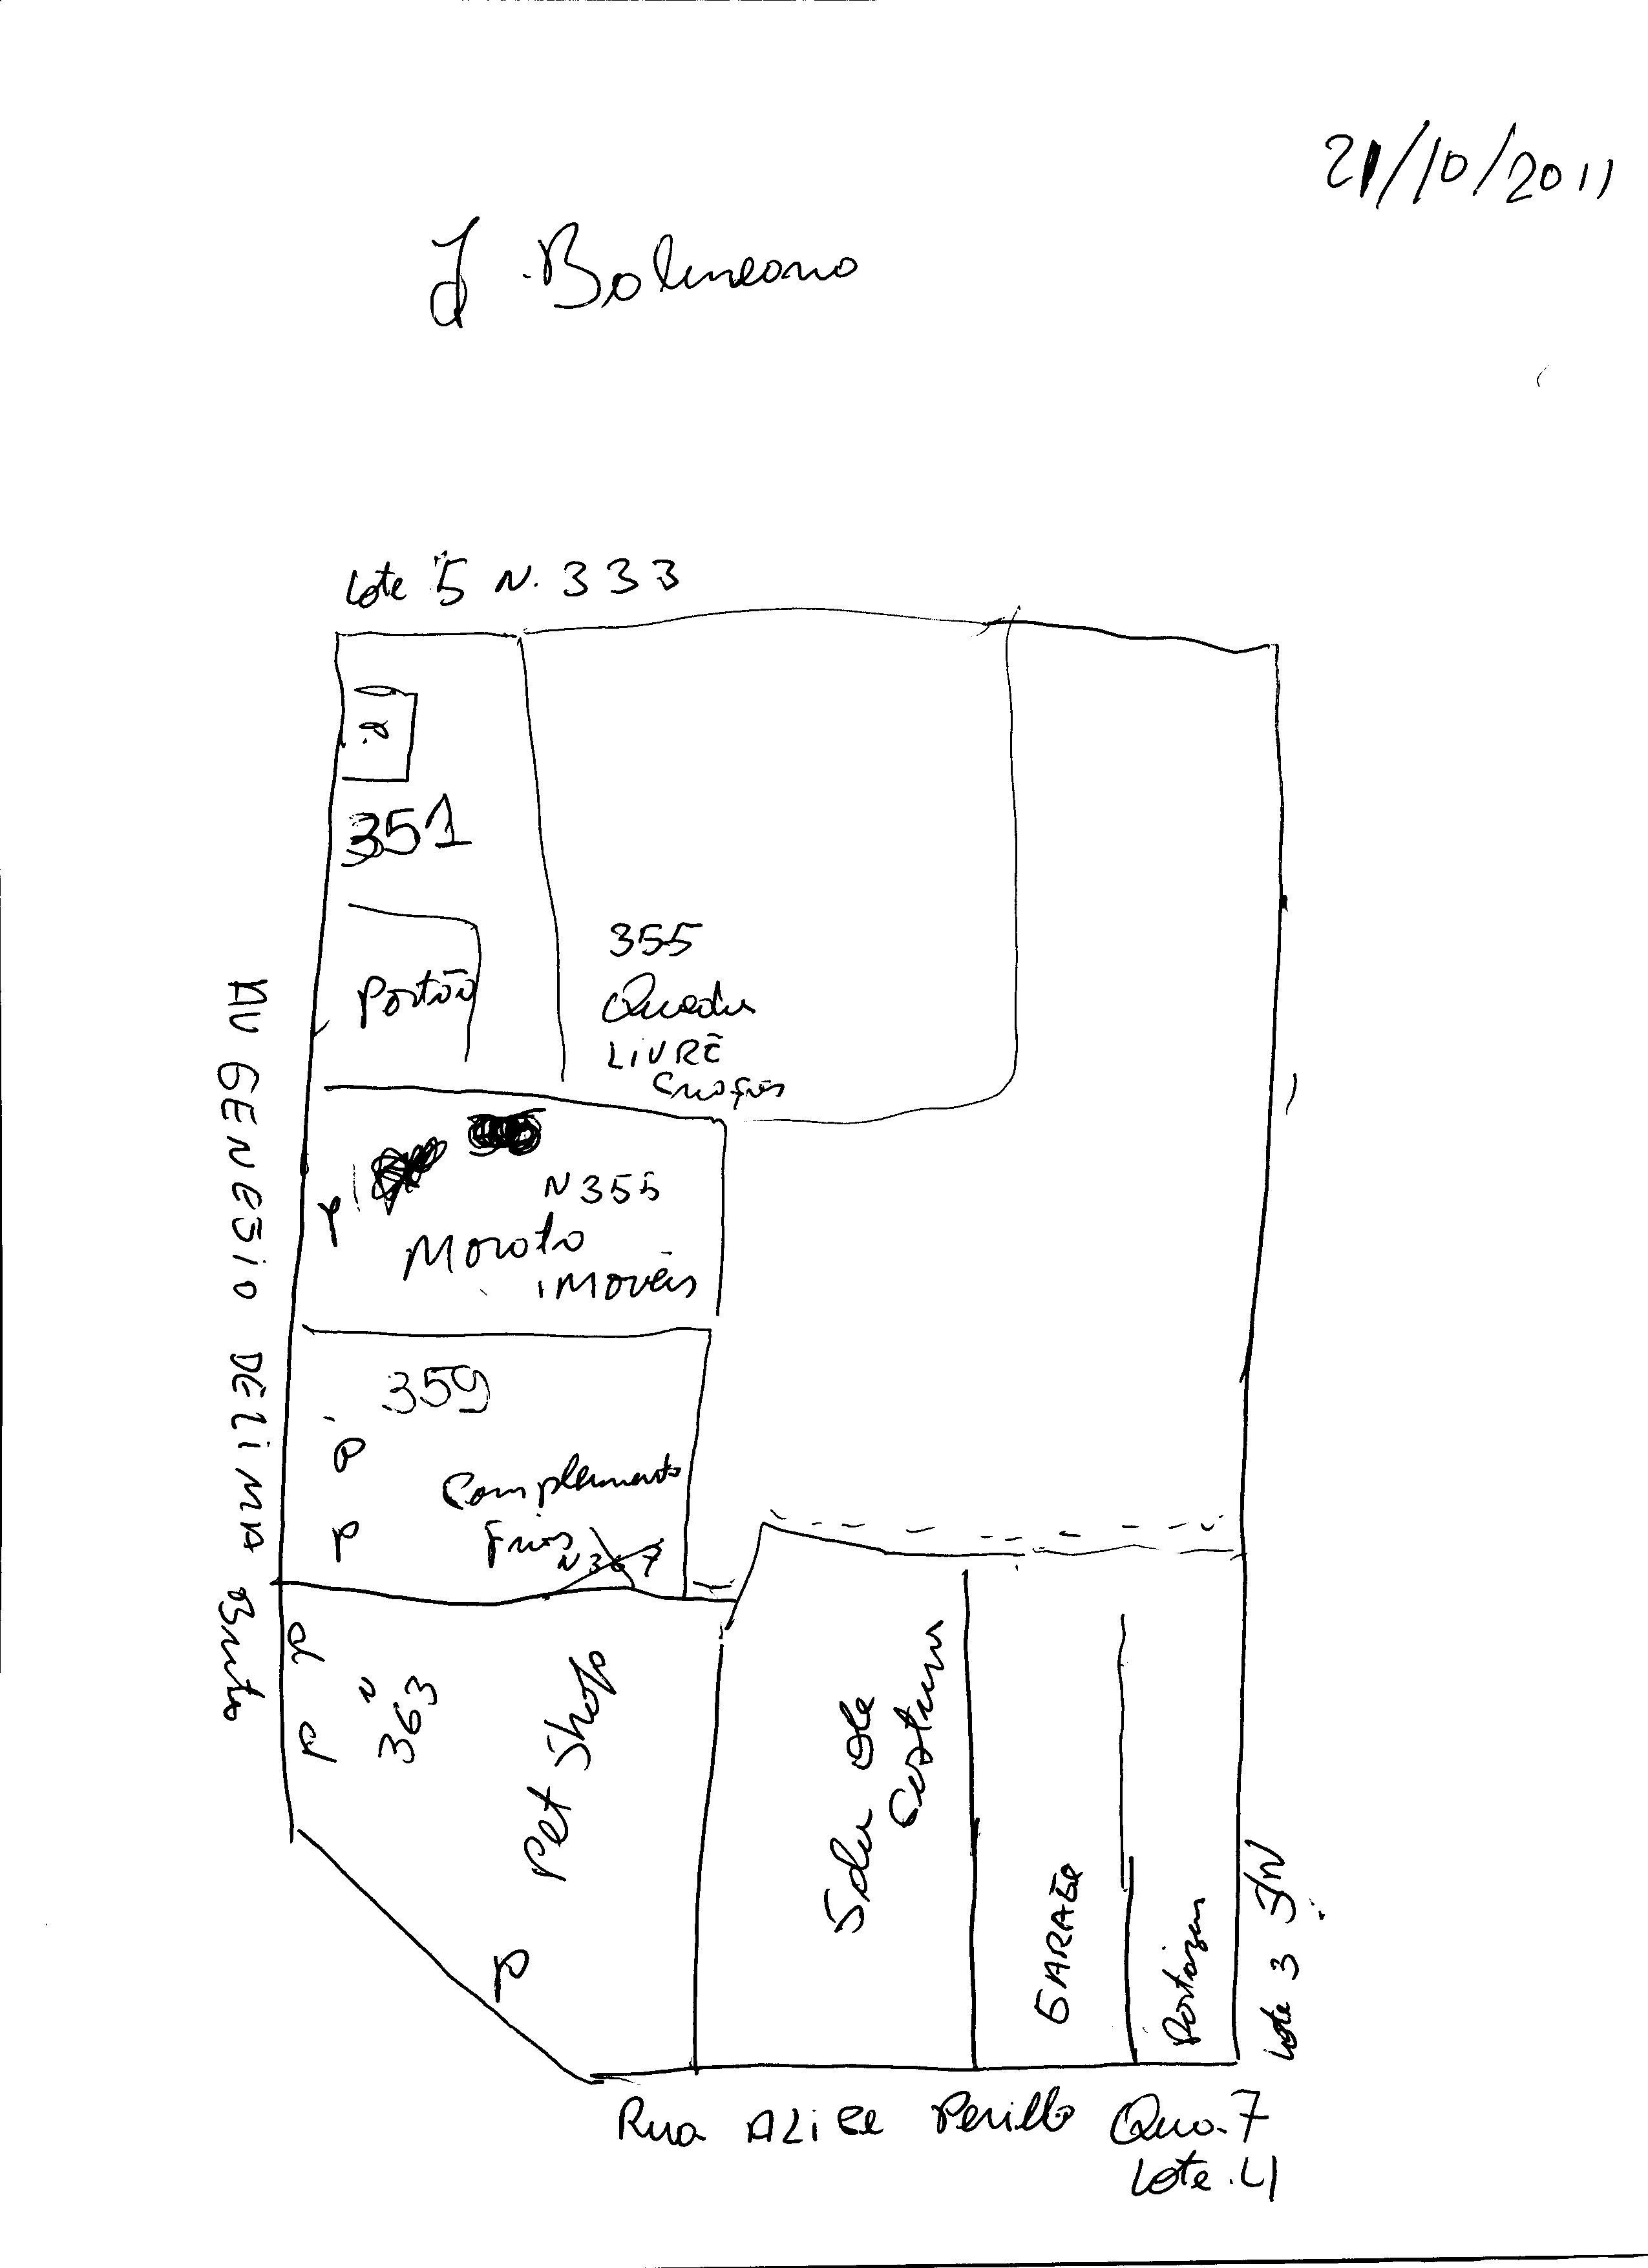 21/10/2011
J. Balneario
Lote 5 N. 333
351
Portão
355
Quadra
LIVRE
N 355
Moroto
imovéis
359
Complemento
Frios
N 367
P
P
P
P
P
N
363
Pet Shop
P
Sala de
Costura
GARAGE
Lote 3 S/N
AV GENESIO DE LIMA Brito
Rua ALiCe Perillo Qua. 7
Lote. 4